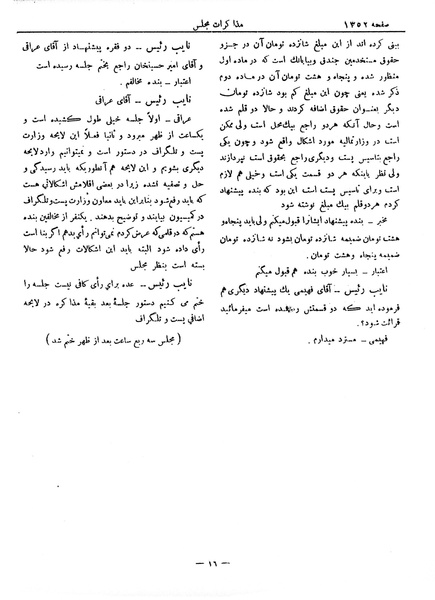 صفحه ۱۳۵۲
مذاکرات مجلس
بینی کرده اند از این مبلغ شانزده تومان آن در جزو
حقوق مستخدمین جندقی وبیابانك است که در ماده اول
منظور شده و پنجاه و هشت تومان آن در این ماده
ذکر شده یعنی چون این مبلغ کم بود شانزده تومان
دیگر بعنوان حقوق اضافه کردند و حالا دو قلم شده
است وحال آنکه هردو راجع بیك محل است ولی ممکن
است در وزارتمالیه مورد اشکال واقع شود و چون یکی
راجع بتاسیس پست ودیگری راجع بحقوق است نپردازند
ولی نظر باینکه هر دو قسمت یکی است وخیلی هم لازم
است وبرای تاسیس پست است این بود که بنده پیشنهاد
کردم هردوقلم بیك مبلغ نوشته شود
مخبر – بنده پیشنهاد ایشانرا قبول میکنم ولی باید پنجاه و
هشت تومان ضمیمه شانزده تومان بشود نه شانزده تومان
ضمیمه پنجاه وهشت تومان
اعتبار – بسیار خوب بنده هم قبول میکنم
نایب رئیس – آقای فهیمی یك پیشنهاد دیگری هم
فرموده اید که دو قسمتش رسیده است میفرمائید
قرائت شود؟.
فهیمی – مسترد میدارم .
نایب رئیس – دو فقره پیشنهاد از آقای عراقی
و آقای امیر حسینخان راجع بختم جلسه رسیده است
اعتبار – بنده مخالفم .
نایب رئیس – آقای عراقی
عراقی – اولاً جلسه خیلی طول کشیده است و
یکساعت از ظهر میرود و ثانیاً فعلاً این لایحه وزارت
پست و تلگراف در دستور است و نمیتوانیم وارد لایحه
دیگری بشویم و این لایحه هم آنطوریکه باید رسیدگی و
حل و تصفیه نشده زیرا در بعضی اقلامش اشکالاتی هست
که باید رفع شود بنابراین باید معاون وزارت پست وتلگراف
در کمیسیون بیایند و توضیح بدهند . یکنفر از مخالفین بنده
هستم که دو قلمی که عرض کردم نمی‌توانم رأی بدهم اگر بنا است
رأی داده شود البته باید این اشکالات رفع شود حالا
بسته است بنظر مجلس
نایب رئیس – عده برای رأی کافی نیست جلسه را
ختم می کنیم دستور جلسهٔ بعد بقیهٔ مذاکره در لایحه
اضافی پست و تلگراف
( مجلس سه ربع ساعت بعد از ظهر ختم شد )
– ۱۶ –